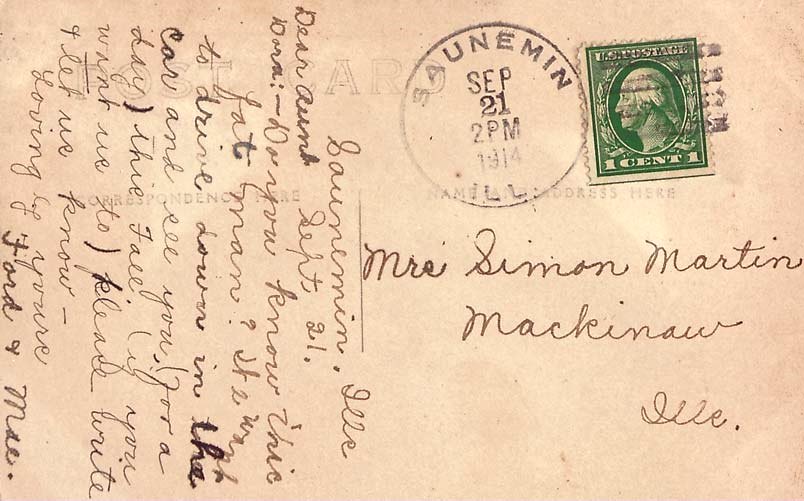 POST CARD
SAUNEMIN
SEP
21
2PM
1914
ILL.
U.S. POSTAGE
1 CENT 1
CORRESPONDENCE HERE
NAME AND ADDRESS HERE
Saunemin, Ills
Sept. 21.
Dear Aunt
Dora:- Do you know this
fat man? He wants
to drive down in the
car and see you, (for a
day) this Fall (if you
want us to) please write
& let us know -
Lovingly yours
Ford & Mae.
Mrs Simon Martin
Mackinaw
Ills.